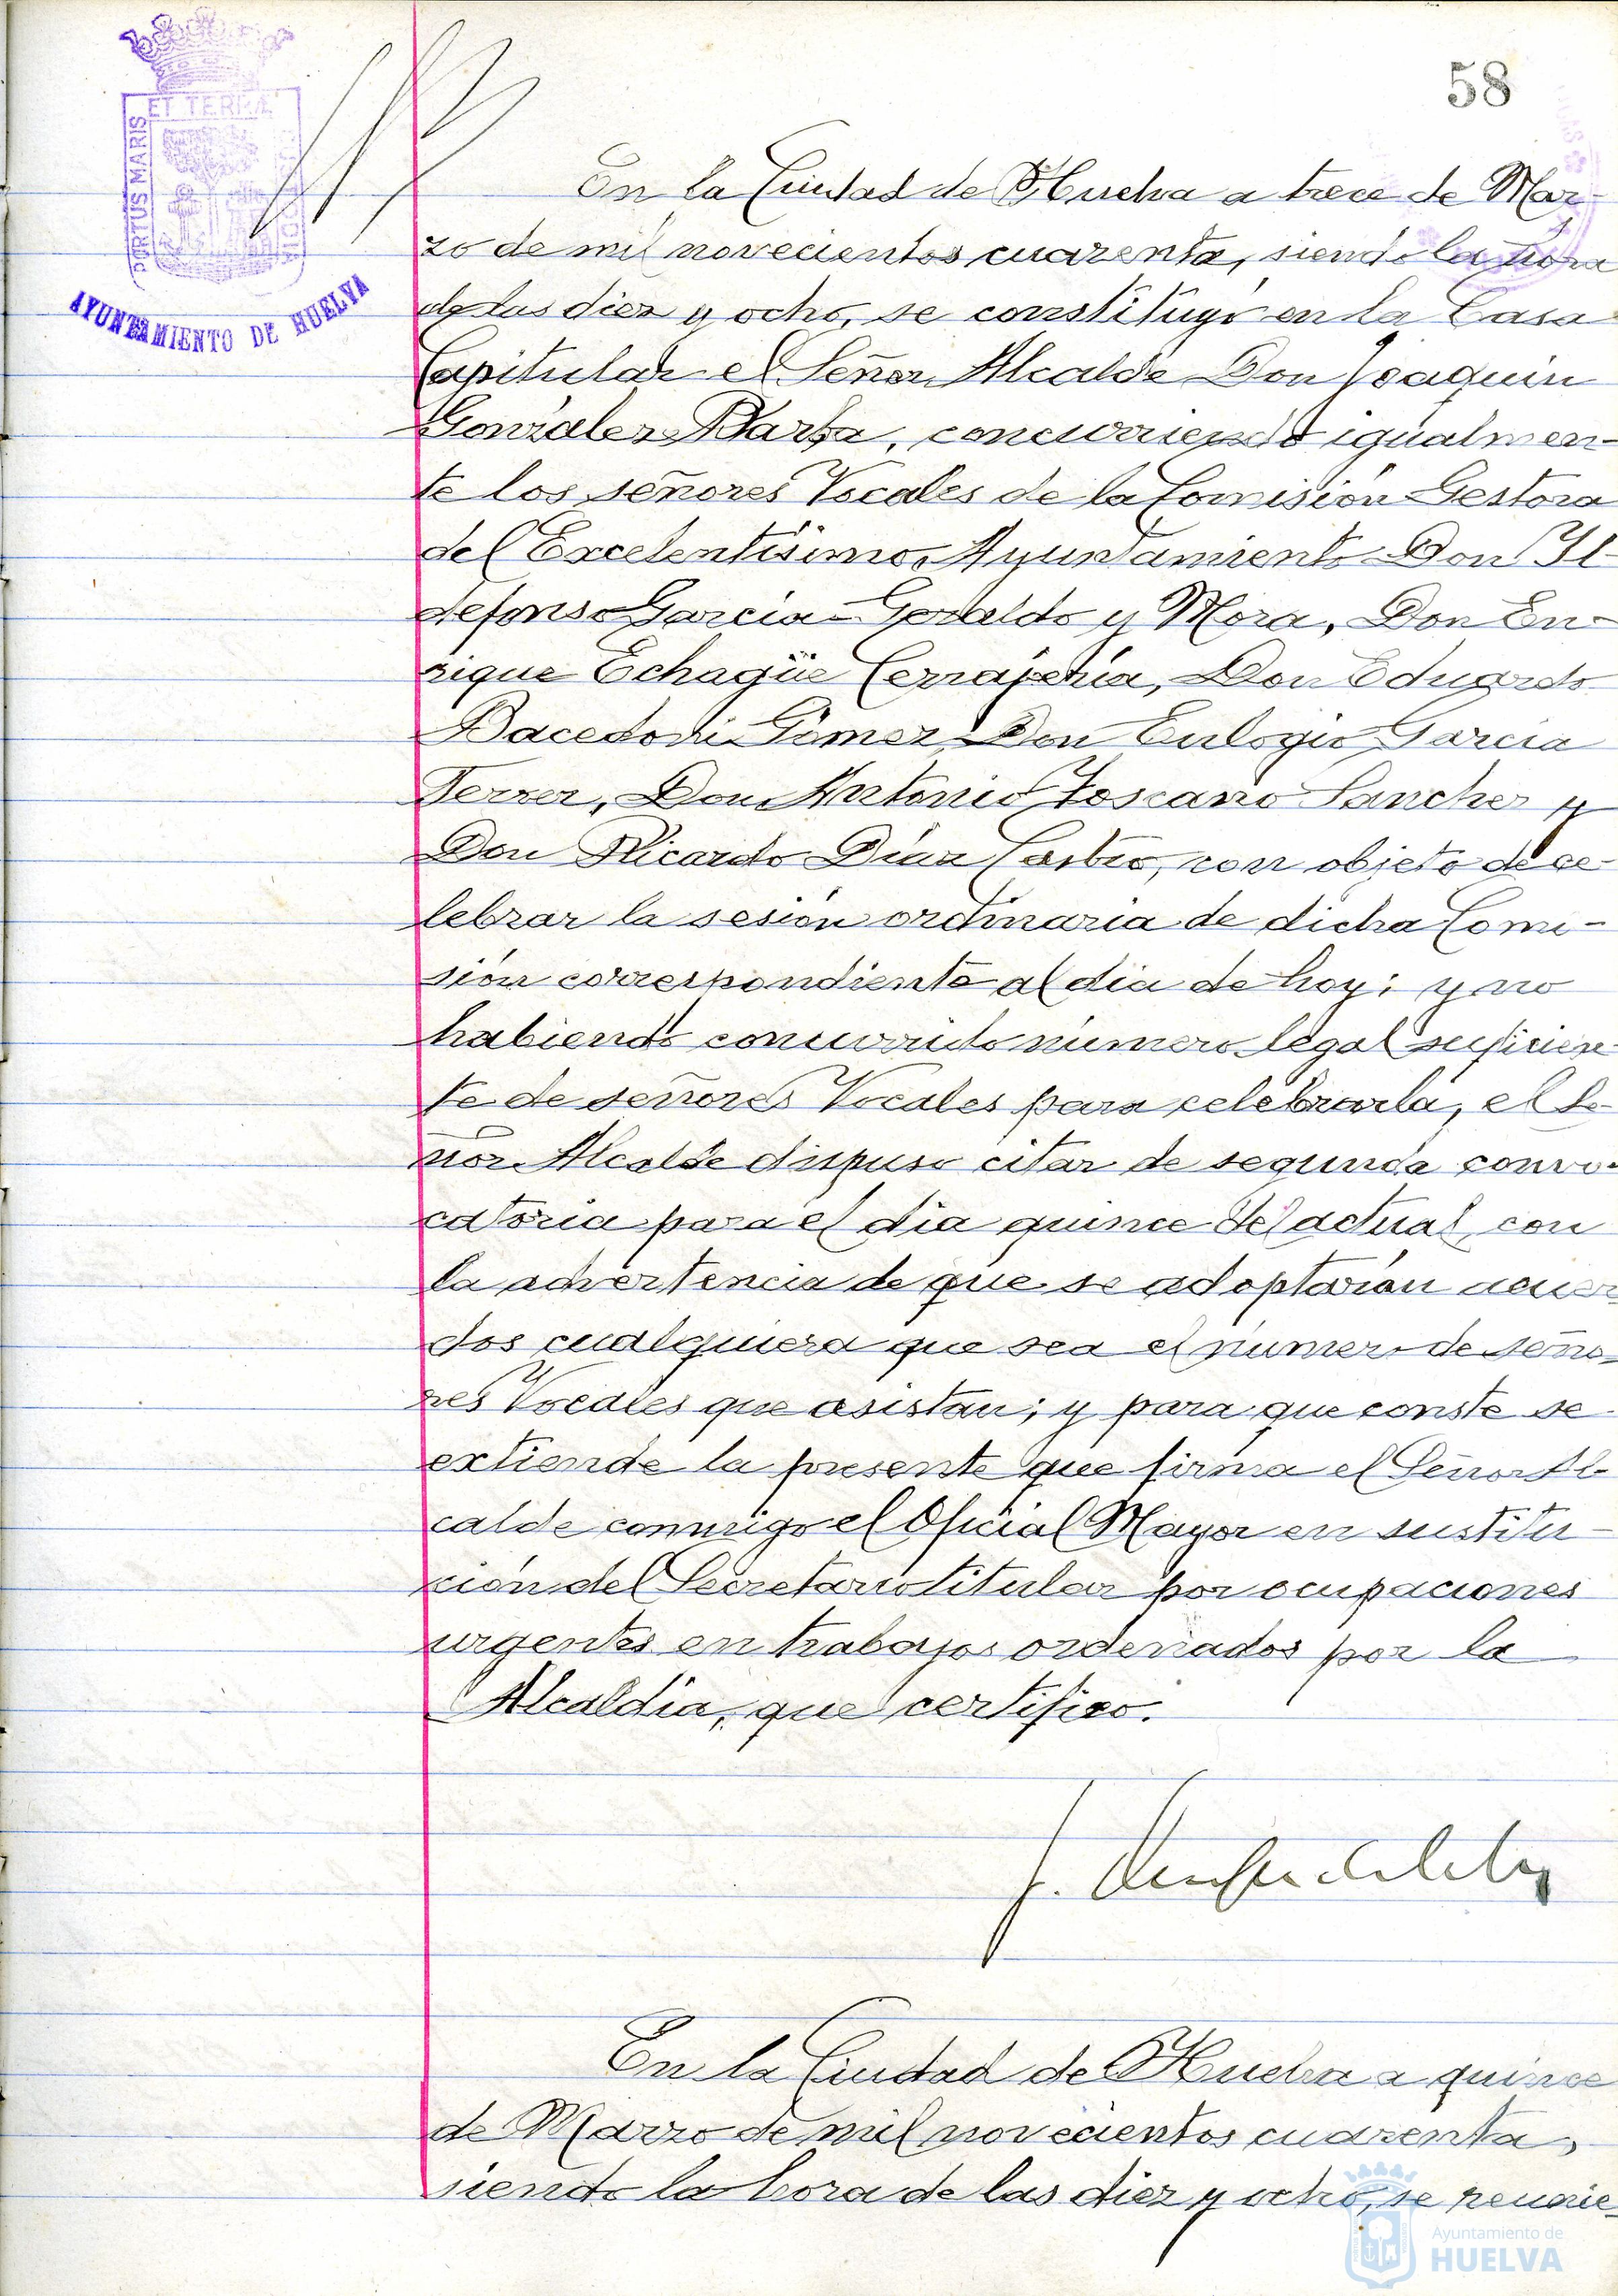 58
PORTUS MARIS
ET TERRÆ
CUSTODIA
AYUNTAMIENTO DE HUELVA
En la Ciudad de Huelva a trece de Mar-
zo de mil novecientos cuarenta, siendo la hora
de las diez y ocho, se constituyó en la Casa
Capitular el Señor Alcalde Don Joaquin
González Barba, concurriendo igualmen-
te los señores Vocales de la Comisión Gestora
del Excelentísimo Ayuntamiento Don Il-
defonso Garcia-Geraldo y Mora, Don En-
rique Echagüe Cerrajería, Don Eduardo
Gómez, Don Eulogio Garcia
Ferrer, Don Antonio Toscano Sanchez y
Don Ricardo Díaz Castro, con objeto de ce-
lebrar la sesión ordinaria de dicha Comi-
sión correspondiente al día de hoy; y no
habiendo concurrido número legal suficien-
te de señores Vocales para celebrarla, el Se-
ñor Alcalde dispuso citar de segunda convo-
catoria para el día quince del actual, con
la advertencia de que se adoptarían acuer-
dos cualquiera que sea el número de seño-
res Vocales que asistan; y para que conste se
extiende la presente que firma el Señor Al-
calde conmigo el Oficial Mayor en sustitu-
ción del Secretario titular por ocupaciones
urgentes en trabajos ordenados por la
Alcaldía, que certifico.
En la Ciudad de Huelva a quince
de Marzo de mil novecientos cuarenta,
siendo la hora de las diez y ocho, se reunie-
Ayuntamiento de
HUELVA